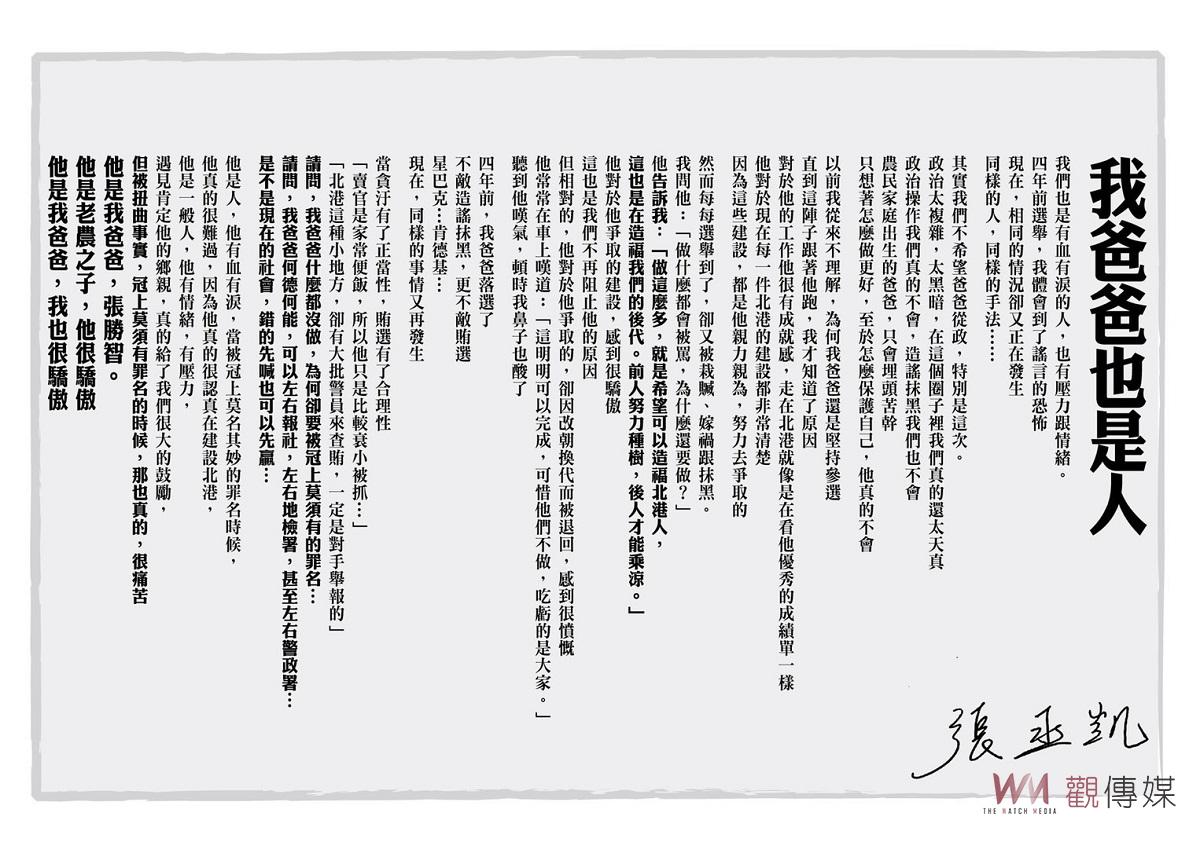 我爸爸也是人
我們也是有血有淚的人，也有壓力跟情緒。
四年前選舉，我體會到了謠言的恐怖
現在，相同的情況卻又正在發生
同樣的人，同樣的手法……
其實我們不希望爸爸從政，特別是這次。
政治太複雜，太黑暗，在這個圈子裡我們真的還太天真
政治操作我們真的不會，造謠抹黑我們也不會
農民家庭出生的爸爸，只會埋頭苦幹
只想著怎麼做更好，至於怎麼保護自己，他真的不會
以前我從來不理解，為何我爸爸還是堅持參選
直到這陣子跟著他跑，我才知道了原因
對於他的工作他很有成就感，走在北港就像是在看他優秀的成績單一樣
他對於現在每一件北港的建設都非常清楚
因為這些建設，都是他親力親為，努力去爭取的
然而每每選舉到了，卻又被栽贓、嫁禍跟抹黑。
我問他：「做什麼都會被罵，為什麼還要做？」
他告訴我：「做這麼多，就是希望可以造福北港人，
這也是在造福我們的後代。前人努力種樹，後人才能乘涼。」
他對於他爭取的建設，感到很驕傲
這也是我們不再阻止他的原因
但相對的，他對於他爭取的，卻因改朝換代而被退回，感到很憤慨
他常常在車上嘆道：「這明明可以完成，可惜他們不做，吃虧的是大家。」
聽到他嘆氣，頓時我鼻子也酸了
四年前，我爸爸落選了
不敵造謠抹黑，更不敵賄選
星巴克…肯德基…
現在，同樣的事情又再發生
當貪汙有了正當性，賄選有了合理性
「賣官是家常便飯，所以他只是比較衰小被抓…」
「北港這種小地方，卻有大批警員來查賄，一定是對手舉報的」
請問，我爸爸什麼都沒做，為何卻要被冠上莫須有的罪名…
請問，我爸爸何德何能，可以左右報社，左右地檢署，甚至左右警政署…
是不是現在的社會，錯的先喊也可以先贏…
他是人，他有血有淚，當被冠上莫名其妙的罪名時候，
他真的很難過，因為他真的很認真在建設北港，
他是一般人，他有情緒，有壓力，
遇見肯定他的鄉親，真的給了我們很大的鼓勵，
但被扭曲事實，冠上莫須有罪名的時候，那也真的，很痛苦
他是我爸爸，張勝智。
他是老農之子，他很驕傲
他是我爸爸，我也很驕傲
張丞凱
WM 觀傳媒
THE WATCH MEDIA